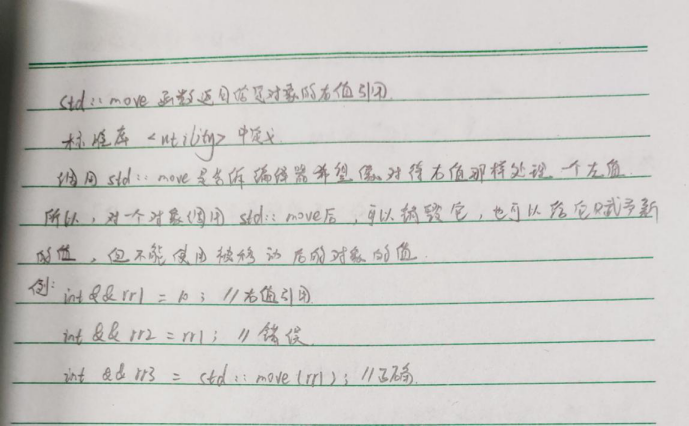 std::move 函数返回给定对象的右值引用.
标准库 <utility> 中定义.
调用 std::move 是告诉编译器希望像对待右值那样处理一个左值.
所以,对一个对象调用 std::move后,可以销毁它,也可以给它赋予新
的值,但不能使用被移动后的对象的值.
例: int && rr1 = 10; //右值引用
int && rr2 = rr1; //错误
int && rr3 = std::move(rr1); //正确.